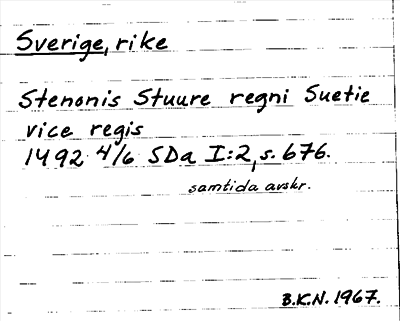 Sverige, rike
Stenonis Stuure regni Suetie
vice regis
1492 4/6 SDa I:2, s. 676.
samtida avskr.
B.K.N. 1967.